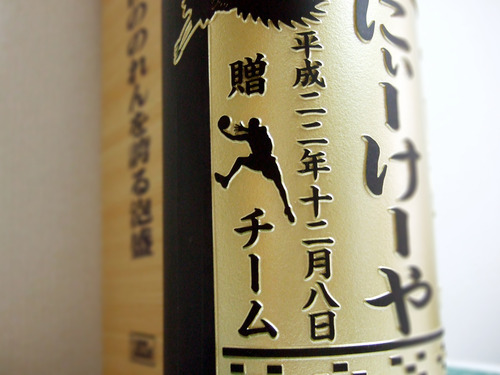 にぃーけーや
平成二二年十二月八日
贈 チーム
ののれんを誇る泡盛